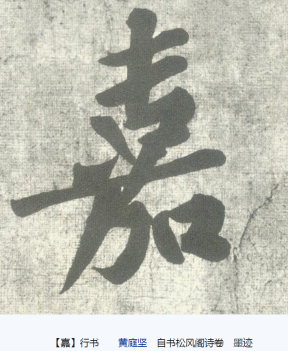 嘉
【嘉】行书 黄庭坚 自书松风阁诗卷 墨迹